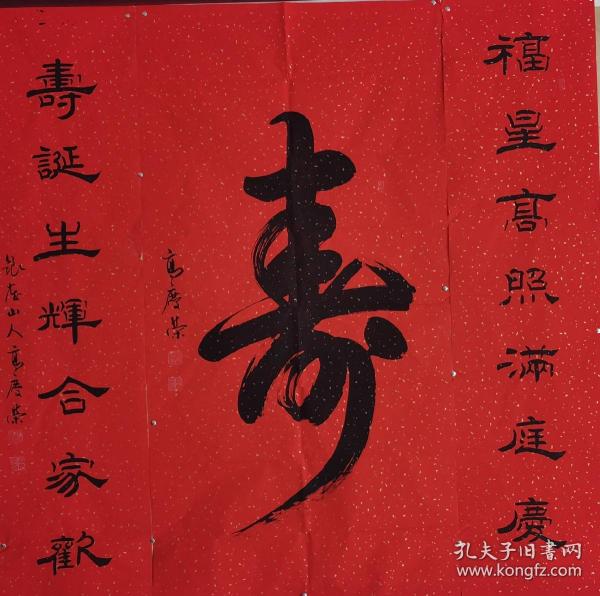 福星高照滿庭慶
壽
高慶榮
壽誕生輝合家歡
山人高慶榮
孔夫子旧書网
www.kongfz.com